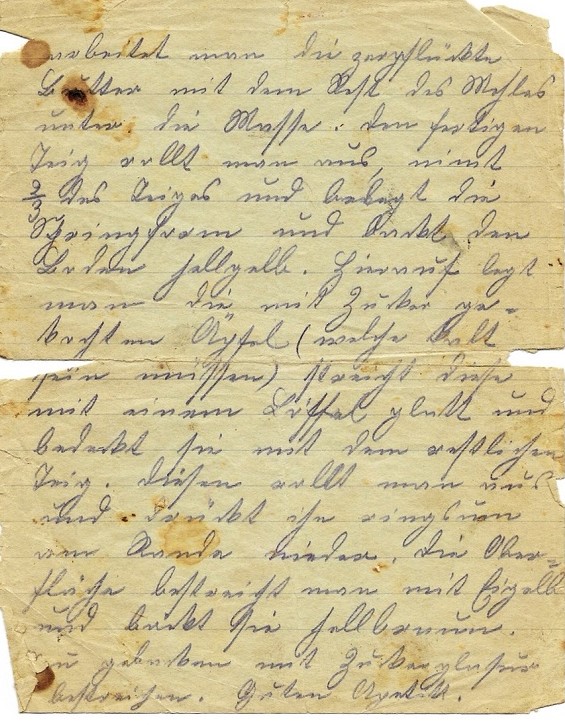 arbeitet man die zerpflückte
Butter mit dem Rest des Mehles
unter die Masse. den fertigen
Teig rollt man aus, nimt
2/3 des Teiges und belegt die
Springform und backt den
Boden hellgelb. Hierauf legt
man die mit Zucker ge-
kochten Äpfel (welche kalt
sein müssen) streicht diese
mit einem Löffel glatt und
bedeckt sie mit dem restlichen
Teig. Diesen rollt man aus
und drückt ihn ringsum
am Rande nieder. Die Ober-
fläche bestreicht man mit Eigelb
und bäckt sie hellbraun.
gebacken mit Zuckerglasur
bestreichen. Guten Apetit.